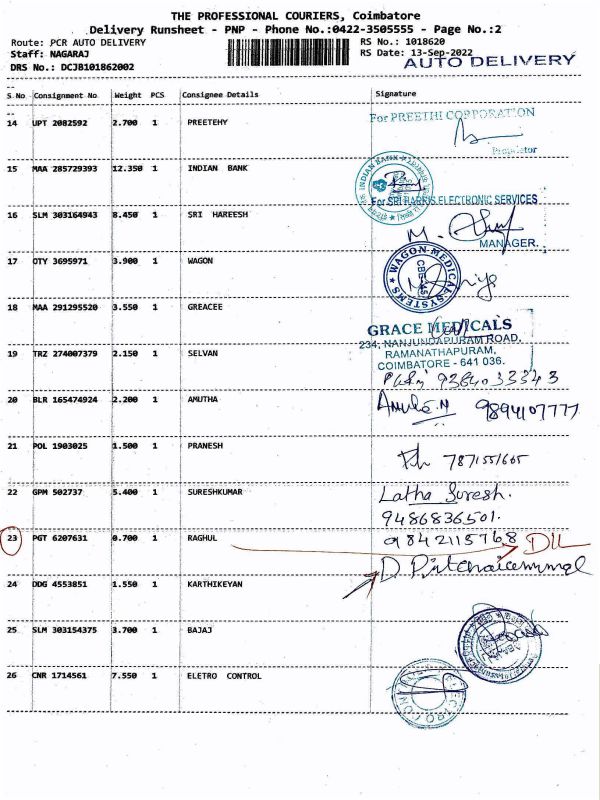 THE PROFESSIONAL COURIERS, Coimbatore
Delivery Runsheet - PNP - Phone No.:0422-3505555 - Page No.:2
Route: PCR AUTO DELIVERY RS No.: 1018620
Staff: NAGARAJ RS Date: 13-Sep-2022
AUTO DELIVERY
DRS No.: DCJB101862002
S.No Consignment No Weight PCS Consignee Details Signature
14 UPT 2082592 2.700 1 PREETEHY
For PREETHI CORPORATION
Proprietor
15 MAA 285729393 12.350 1 INDIAN BANK
INDIAN BANK
For SRI HARRIS ELECTRONIC SERVICES
16 SLM 303164943 8.450 1 SRI HAREESH
MANAGER.
17 OTY 3695971 3.900 1 WAGON
WAGON MEDICAL SYSTEMS
18 MAA 291295520 3.550 1 GREACEE
GRACE MEDICALS
234, NANJUNDAPURAM ROAD,
RAMANATHAPURAM,
COIMBATORE - 641 036.
19 TRZ 274007379 2.150 1 SELVAN
9384033343
20 BLR 165474924 2.200 1 AMUTHA
Amutha.M 9894107777
21 POL 1903025 1.500 1 PRANESH
Ph
22 GPM 502737 5.400 1 SURESHKUMAR
Latha Suresh.
9486836501.
23 PGT 6207631 0.700 1 RAGHUL
9842115768 DLL
24 DDG 4553851 1.550 1 KARTHIKEYAN
25 SLM 303154375 3.700 1 BAJAJ
26 CNR 1714561 7.550 1 ELETRO CONTROL